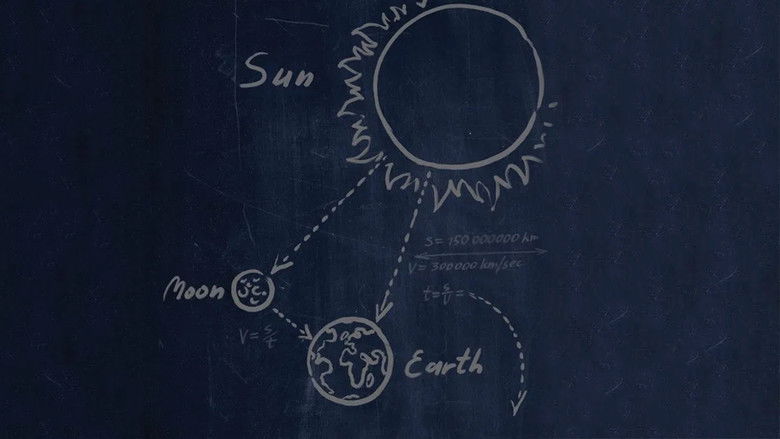 Sun
S = 150 000000 km
V = 300000 km/sec
t = s/v =
Moon
V = s/t
Earth